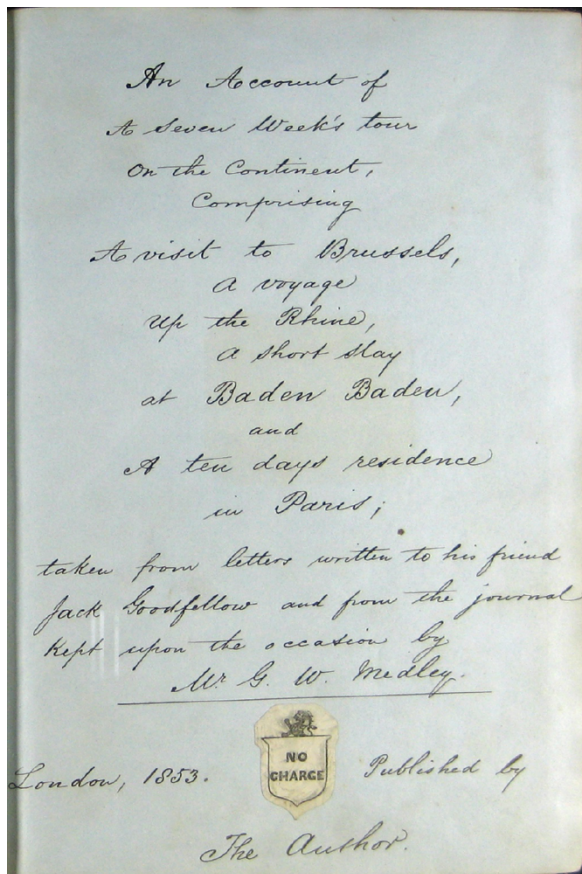 An Account of
A Seven Week's tour
On the Continent,
Comprising
A visit to Brussels,
A voyage
Up the Rhine,
A short stay
at Baden Baden,
and
A ten days residence
in Paris;
taken from letters written to his friend
Jack Goodfellow and from the journal
Kept upon the occasion by
Mr G. W. Medley.
NO
CHARGE
London, 1853. Published by
The Author.